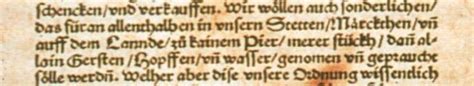 schencken/vnd verkauffen. Wir wöllen auch sonderlichen/
das für an allenthalben in vnsern Stetten/Märckthen/vn̄
auff dem Lannde/zů kainem Pier/merer stückh/dan̄ al-
lain Gersten/Hopffen/vn̄ wasser/genomen vn̄ gepraucht
sölle werdn̄. Welher aber dise vnsere Ordnung wissentlich